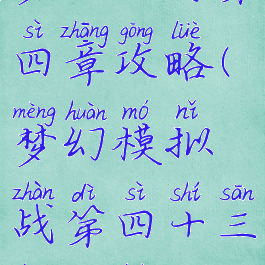 sì zhāng gōng lüè
四章攻略(
mèng huàn mó nǐ
梦幻模拟
zhàn dì sì shí sān
战第四十三